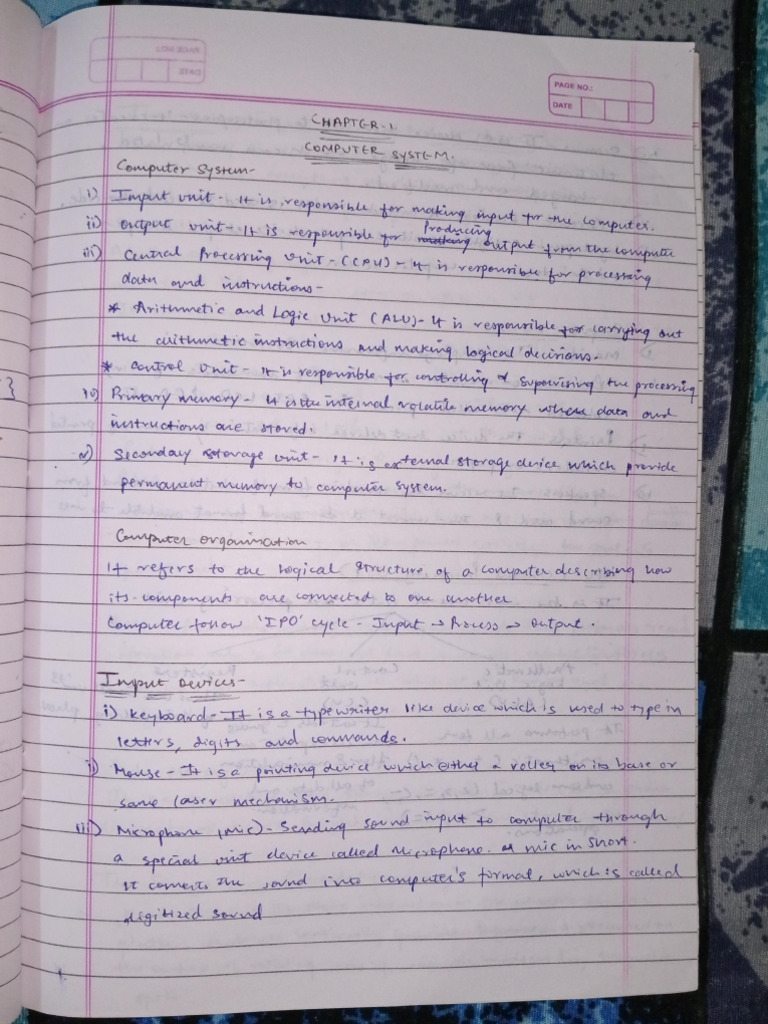 PAGE NO.:
DATE
CHAPTER-1.
COMPUTER SYSTEM.
Computer System-
i) Input unit - It is responsible for making input for the computer.
ii) output unit - It is responsible for Producing output from the compute
iii) Central Processing Unit - (CPU) - It is responsible for processing
data and instructions -
* Arithmetic and Logic Unit (ALU) - It is responsible for carrying out
the arithmetic instructions and making logical decisions.
* control Unit - It is responsible for controlling & Supervising the processing
iv) Primary memory - It is the internal volatile memory where data and
instructions are stored.
v) Secondary storage unit - It is external storage device which provide
permanent memory to computer system.
Computer organisation
It refers to the logical structure of a computer describing how
its components are connected to one another
Computer follow 'IPO' cycle - Input → Process → Output.
Input Devices-
i) Keyboard - It is a typewriter like device which is used to type in
letters, digits and commands.
ii) Mouse - It is a pointing device which either a roller on its base or
same laser mechanism.
iii) Microphone (mic) - Sending sound input to computer through
a special unit device called Microphone. mic in short.
It converts the sound into computer's format, which is called
digitized sound